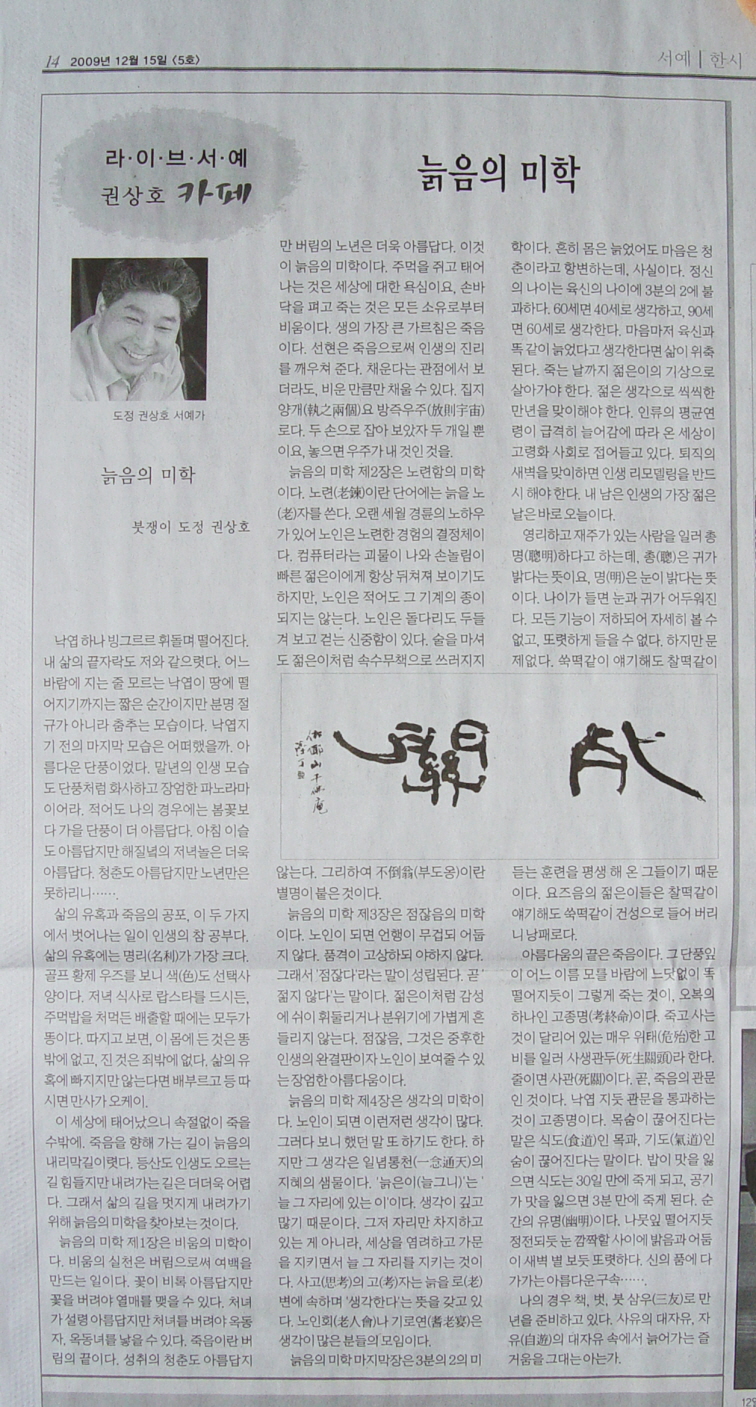 14 2009년 12월 15일 <5호>
서예 | 한시
라·이·브·서·예
권상호 카페
늙음의 미학
도정 권상호 서예가
늙음의 미학
붓쟁이 도정 권상호
낙엽 하나 빙그르르 휘돌며 떨어진다.
내 삶의 끝자락도 저와 같으렷다. 어느
바람에 지는 줄 모르는 낙엽이 땅에 떨
어지기까지는 짧은 순간이지만 분명 절
규가 아니라 춤추는 모습이다. 낙엽지
기 전의 마지막 모습은 어떠했을까. 아
름다운 단풍이었다. 말년의 인생 모습
도 단풍처럼 화사하고 장엄한 파노라마
이어라. 적어도 나의 경우에는 봄꽃보
다 가을 단풍이 더 아름답다. 아침 이슬
도 아름답지만 해질녘의 저녁놀은 더욱
아름답다. 청춘도 아름답지만 노년만은
못하리니…….
삶의 유혹과 죽음의 공포, 이 두 가지
에서 벗어나는 일이 인생의 참 공부다.
삶의 유혹에는 명리(名利)가 가장 크다.
골프 황제 우즈를 보니 색(色)도 선택사
양이다. 저녁 식사로 랍스타를 드시든,
주먹밥을 처먹든 배출할 때에는 모두가
똥이다. 따지고 보면, 이 몸에 든 것은 똥
밖에 없고, 진 것은 죄밖에 없다. 삶의 유
혹에 빠지지만 않는다면 배부르고 등 따
시면 만사가 오케이.
이 세상에 태어났으니 속절없이 죽을
수밖에. 죽음을 향해 가는 길이 늙음의
내리막길이렷다. 등산도 인생도 오르는
길 힘들지만 내려가는 길은 더더욱 어렵
다. 그래서 삶의 길을 멋지게 내려가기
위해 늙음의 미학을 찾아보는 것이다.
늙음의 미학 제1장은 비움의 미학이
다. 비움의 실천은 버림으로써 여백을
만드는 일이다. 꽃이 비록 아름답지만
꽃을 버려야 열매를 맺을 수 있다. 처녀
가 설령 아름답지만 처녀를 버려야 옥동
자, 옥동녀를 낳을 수 있다. 죽음이란 버
림의 끝이다. 성취의 청춘도 아름답지
만 버림의 노년은 더욱 아름답다. 이것
이 늙음의 미학이다. 주먹을 쥐고 태어
나는 것은 세상에 대한 욕심이요, 손바
닥을 펴고 죽는 것은 모든 소유로부터
비움이다. 생의 가장 큰 가르침은 죽음
이다. 선현은 죽음으로써 인생의 진리
를 깨우쳐 준다. 채운다는 관점에서 보
더라도, 비운 만큼만 채울 수 있다. 집지
양개(執之兩個)요 방즉우주(放則宇宙)
로다. 두 손으로 잡아 보았자 두 개일 뿐
이요, 놓으면 우주가 내 것인 것을.
늙음의 미학 제2장은 노련함의 미학
이다. 노련(老鍊)이란 단어에는 늙을 노
(老)자를 쓴다. 오랜 세월 경륜의 노하우
가 있어 노인은 노련한 경험의 결정체이
다. 컴퓨터라는 괴물이 나와 손놀림이
빠른 젊은이에게 항상 뒤쳐져 보이기도
하지만, 노인은 적어도 그 기계의 종이
되지는 않는다. 노인은 돌다리도 두들
겨 보고 걷는 신중함이 있다. 술을 마셔
도 젊은이처럼 속수무책으로 쓰러지지
않는다. 그리하여 不倒翁(부도옹)이란
별명이 붙은 것이다.
늙음의 미학 제3장은 점잖음의 미학
이다. 노인이 되면 언행이 무겁되 어둡
지 않다. 품격이 고상하되 야하지 않다.
그래서 '점잖다'라는 말이 성립된다. 곧 '
젊지 않다'는 말이다. 젊은이처럼 감성
에 쉬이 휘둘리거나 분위기에 가볍게 흔
들리지 않는다. 점잖음, 그것은 중후한
인생의 완결판이자 노인이 보여줄 수 있
는 장엄한 아름다움이다.
늙음의 미학 제4장은 생각의 미학이
다. 노인이 되면 이런저런 생각이 많다.
그러다 보니 했던 말 또 하기도 한다. 하
지만 그 생각은 일념통천(一念通天)의
지혜의 샘물이다. '늙은이(늘그니)'는 '
늘 그 자리에 있는 이'이다. 생각이 깊고
많기 때문이다. 그저 자리만 차지하고
있는 게 아니라, 세상을 염려하고 가문
을 지키면서 늘 그 자리를 지키는 것이
다. 사고(思考)의 고(考)자는 늙을 로(老)
변에 속하며 '생각한다'는 뜻을 갖고 있
다. 노인회(老人會)나 기로연(耆老宴)은
생각이 많은 분들의 모임이다.
늙음의 미학 마지막장은 3분의 2의 미
학이다. 흔히 몸은 늙었어도 마음은 청
춘이라고 항변하는데, 사실이다. 정신
의 나이는 육신의 나이에 3분의 2에 불
과하다. 60세면 40세로 생각하고, 90세
면 60세로 생각한다. 마음마저 육신과
똑 같이 늙었다고 생각한다면 삶이 위축
된다. 죽는 날까지 젊은이의 기상으로
살아가야 한다. 젊은 생각으로 씩씩한
만년을 맞이해야 한다. 인류의 평균연
령이 급격히 늘어감에 따라 온 세상이
고령화 사회로 접어들고 있다. 퇴직의
새벽을 맞이하면 인생 리모델링을 반드
시 해야 한다. 내 남은 인생의 가장 젊은
날은 바로 오늘이다.
영리하고 재주가 있는 사람을 일러 총
명(聰明)하다고 하는데, 총(聰)은 귀가
밝다는 뜻이요, 명(明)은 눈이 밝다는 뜻
이다. 나이가 들면 눈과 귀가 어두워진
다. 모든 기능이 저하되어 자세히 볼 수
없고, 또렷하게 들을 수 없다. 하지만 문
제없다. 쑥떡같이 얘기해도 찰떡같이
듣는 훈련을 평생 해 온 그들이기 때문
이다. 요즈음의 젊은이들은 찰떡같이
얘기해도 쑥떡같이 건성으로 들어 버리
니 낭패로다.
아름다움의 끝은 죽음이다. 그 단풍잎
이 어느 이름 모를 바람에 느닷없이 똑
떨어지듯이 그렇게 죽는 것이, 오복의
하나인 고종명(考終命)이다. 죽고 사는
것이 달리어 있는 매우 위태(危殆)한 고
비를 일러 사생관두(死生關頭)라 한다.
줄이면 사관(死關)이다. 곧, 죽음의 관문
인 것이다. 낙엽 지듯 관문을 통과하는
것이 고종명이다. 목숨이 끊어진다는
말은 식도(食道)인 목과, 기도(氣道)인
숨이 끊어진다는 말이다. 밥이 맛을 잃
으면 식도는 30일 만에 죽게 되고, 공기
가 맛을 잃으면 3분 만에 죽게 된다. 순
간의 유명(幽明)이다. 나뭇잎 떨어지듯
정전되듯 눈 깜짝할 사이에 밝음과 어둠
이 새벽 별 보듯 또렷하다. 신의 품에 다
가가는 아름다운 구속…….
나의 경우 책, 벗, 붓 삼우(三友)로 만
년을 준비하고 있다. 사유의 대자유, 자
유(自遊)의 대자유 속에서 늙어가는 즐
거움을 그대는 아는가.